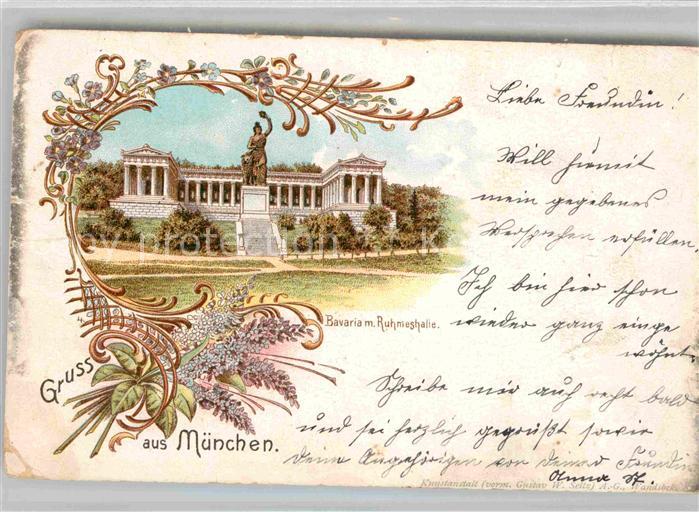 Liebe Freundin!
Will hiemit
mein gegebenes
Versprechen erfüllen.
Ich bin hier schon
wieder ganz einge
wöhnt.
Schreibe mir auf recht bald
und sei herzlich gegrüßt sowie
deine Angehörigen von deiner Freundin
Anna St.
Bavaria m. Ruhmeshalle.
Gruss
aus München.
Kunstanstalt (vorm. Gustav W. Seitz) A.-G., Wandsbek